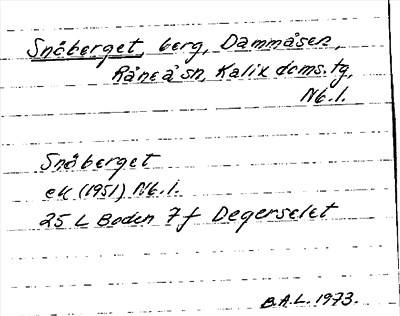 Snåberget, berg, Dammåsen,
Råneå sn, Kalix doms.tg,
Nb.l.
Snåberget
ek (1951) Nb.l.
25 L Boden 7 f Degerselet
B.A.L. 1973.